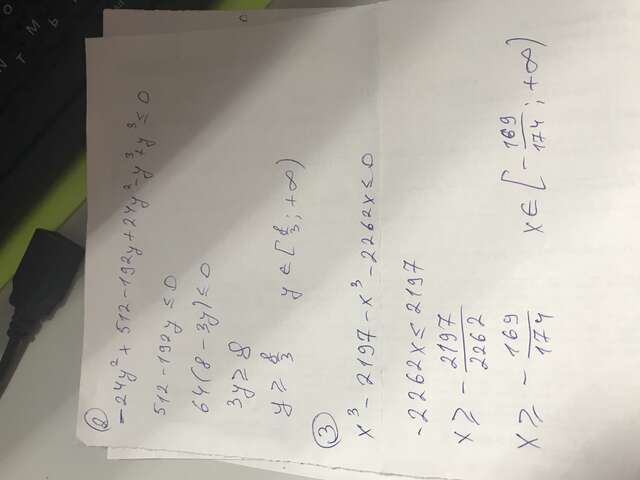 2
-24y² + 512 - 192y + 24y² - y³ + y³ ≤ 0
512 - 192y ≤ 0
64(8 - 3y) ≤ 0
3y ≥ 8
y ≥ 8/3 y ∈ [8/3; +∞)
3
x³ - 2197 - x³ - 2262x ≤ 0
-2262x ≤ 2197
x ≥ - 2197/2262
x ≥ - 169/174 x ∈ [- 169/174; +∞)